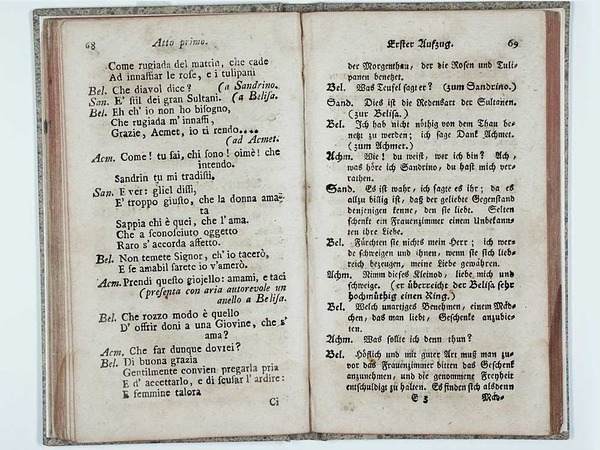 68 Atto primo.
Come rugiada del mattin, che cade
Ad innaffiar le rose, e i tulipani
Bel. Che diavol dice? (a Sandrino.
San. E' stil dei gran Sultani. (a Belisa.
Bel. Eh ch' io non ho bisogno,
Che rugiada m' innaffi,
Grazie, Acmet, io ti rendo....
(ad Acmet.
Acm. Come! tu sai, chi sono! oimè! che
intendo.
Sandrin tu mi tradisti,
San. E ver: gliel dissi,
E' troppo giusto, che la donna ama-
ta
Sappia chi è quei, che l' ama.
Che a sconosciuto oggetto
Raro s' accorda affetto.
Bel. Non temete Signor, ch' io tacerò,
E se amabil sarete io v'amerò.
Acm. Prendi questo giojello: amami, e taci
(presenta con aria autorevole un
anello a Belisa.
Bel. Che rozzo modo è quello
D' offrir doni a una Giovine, che s'
ama?
Acm. Che far dunque dovrei?
Bel. Di buona grazia
Gentilmente convien pregarla pria
E d' accettarlo, e di scusar l' ardire:
E femmine talora
Ci
Erster Aufzug. 69
der Morgenthau, der die Rosen und Tuli-
panen benetzet.
Bel. Was Teufel sagt er? (zum Sandrino.)
Sand. Dies ist die Redensart der Sultanen.
(zur Belisa.)
Bel. Ich hab nicht nöthig von dem Thau be-
netzt zu werden; ich sage Dank Achmet.
(zum Achmet.)
Achm. Wie! du weist, wer ich bin? Ach,
was höre ich Sandrino, du hast mich ver-
rathen.
Sand. Es ist wahr, ich sagte es ihr; da es
allzu billig ist, daß der geliebte Gegenstand
denjenigen kenne, den sie liebt. Selten
schenkt ein Frauenzimmer einem Unbekann-
ten ihre Liebe.
Bel. Fürchten sie nichts mein Herr; ich wer-
de schweigen und ihnen, wenn sie sich lieb-
reich bezeugen, meine Liebe gewähren.
Achm. Nimm dieses Kleinod, liebe mich und
schweige. (er überreicht der Belisa sehr
hochmüthig einen Ring.)
Bel. Welch unartiges Benehmen, einem Mäd-
chen, das man liebt, Geschenke anzubie-
ten.
Achm. Was sollte ich denn thun?
Bel. Höflich und mit guter Art muß man zu-
vor das Frauenzimmer bitten das Geschenk
anzunehmen, und die genommene Freyheit
entschuldigt zu halten. Es finden sich alsdenn
E 3 Mäd-